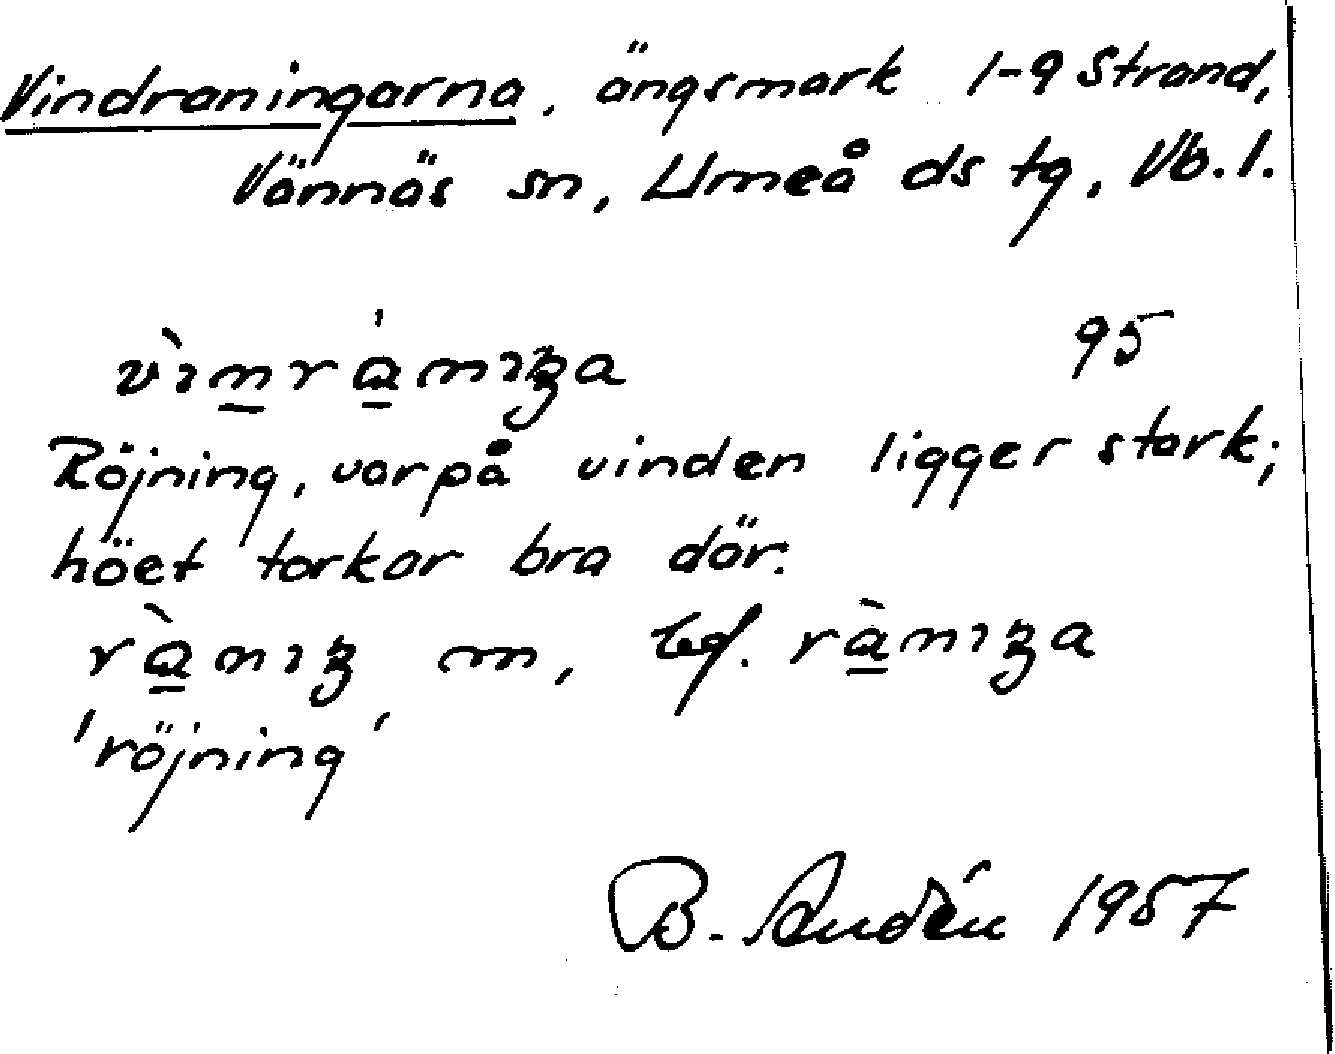 Vindraningarna, ängsmark 1-9 Strand,
Vännäs sn, Umeå ds tg, Vb. l.
vìnra̱̍nɪʒa 95
Röjning, varpå vinden ligger stark;
höet torkar bra där.
rà̱nɪʒ m, bf. rà̱nɪʒa
'röjning'
B. Audén 1957